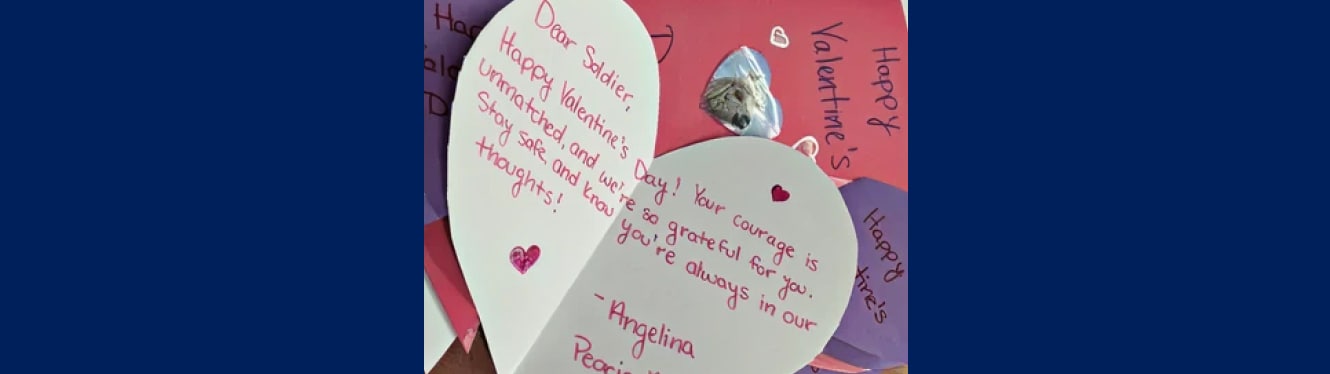 Dear Soldier,
Happy Valentine's Day! Your courage is
unmatched, and we're so grateful for you.
Stay safe and know you're always in our
thoughts!
-Angelina
Happy
Valentine's
Happy